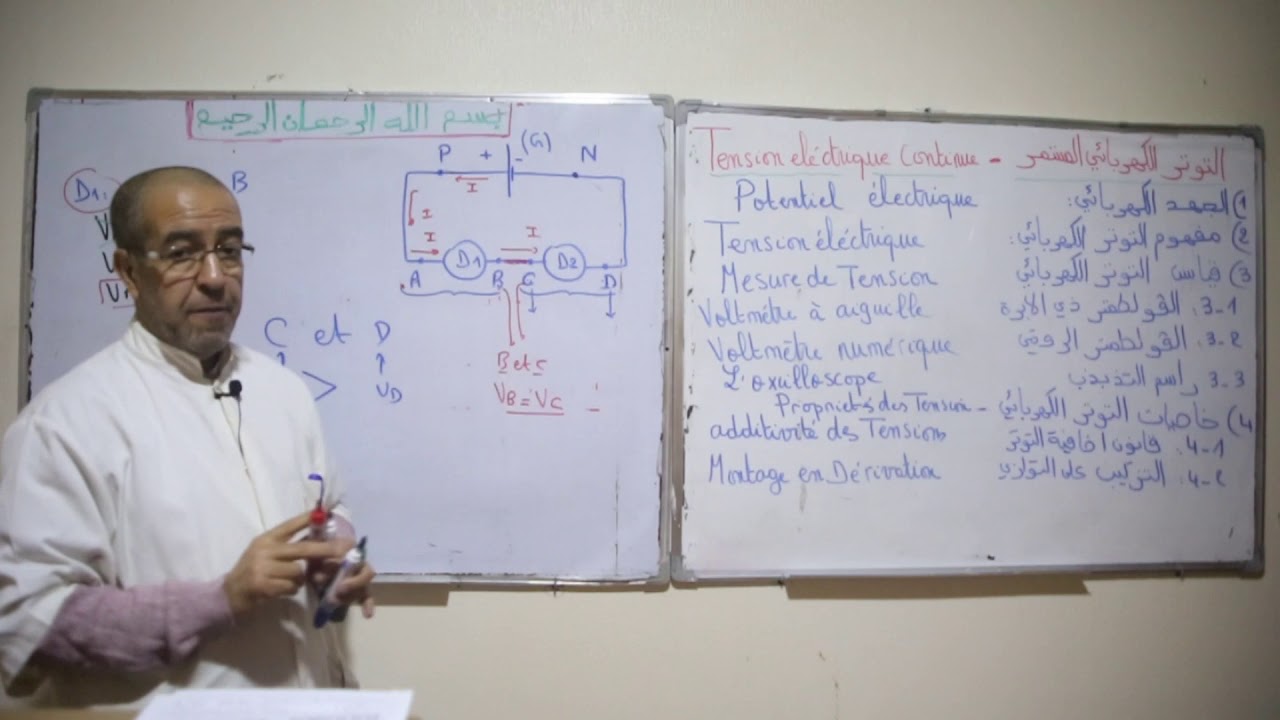 بسم الله الرحمان الرحيم
D1:
B
V
V
V
C et D
>
VD
P + - (G) N
I
I
I
I
D1
D2
A B C D
B et C
VB = VC
Tension eléctrique Continue - التوتر الكهربائي المستمر
Potentiel électrique 1) الجهد الكهربائي:
Tension éléctrique 2) مفهوم التوتر الكهربائي:
Mesure de Tension 3) قياس التوتر الكهربائي
Voltmétre à aiguille 3-1. الڤولطمتر ذي الإبرة
Voltmètre numérique 3-2. الڤولطمتر الرقمي
L'oxilloscope 3-3 راسم التذبذب
Propriétés des Tension - 4) خاصيات التوتر الكهربائي
additivité des Tensions 4-1. قانون اضافية التوتر
Montage en Dérivation 4-2. التركيب على التوازي